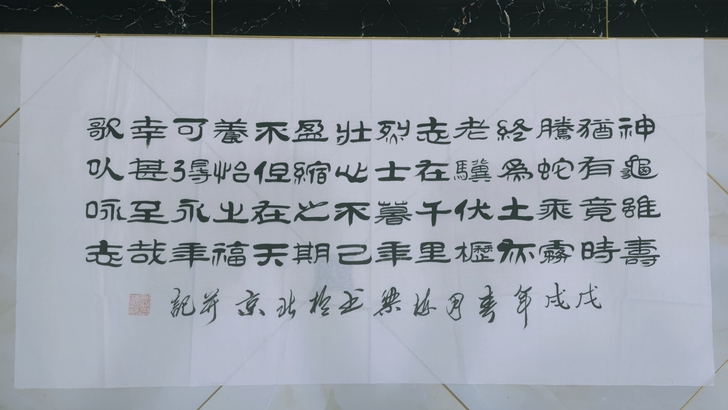 神龜雖壽
猶有竟時
騰蛇乘霧
終為土灰
老驥伏櫪
志在千里
烈士暮年
壯心不已
盈縮之期
不但在天
養怡之福
可得永年
幸甚至哉
歌以咏志
戊戌年春书於北京并記